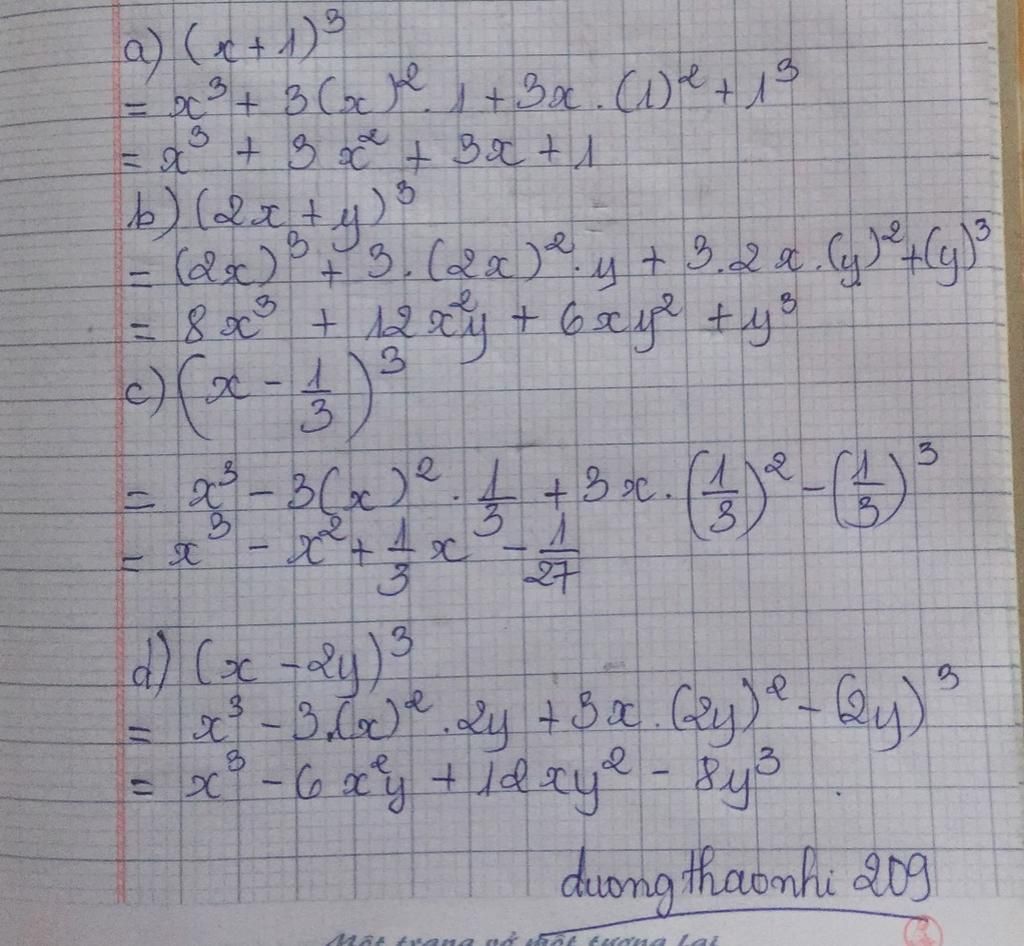 a) (x+1)³
= x³ + 3(x)².1 + 3x.(1)² + 1³
= x³ + 3x² + 3x + 1
b) (2x+y)³
= (2x)³ + 3.(2x)².y + 3.2x.(y)² + (y)³
= 8x³ + 12x²y + 6xy² + y³
c) (x - 1/3)³
= x³ - 3(x)².1/3 + 3x.(1/3)² - (1/3)³
= x³ - x² + 1/3 x - 1/27
d) (x - 2y)³
= x³ - 3.(x)².2y + 3x.(2y)² - (2y)³
= x³ - 6x²y + 12xy² - 8y³.
duongthaonhi 209
Một trang vở một tương lai